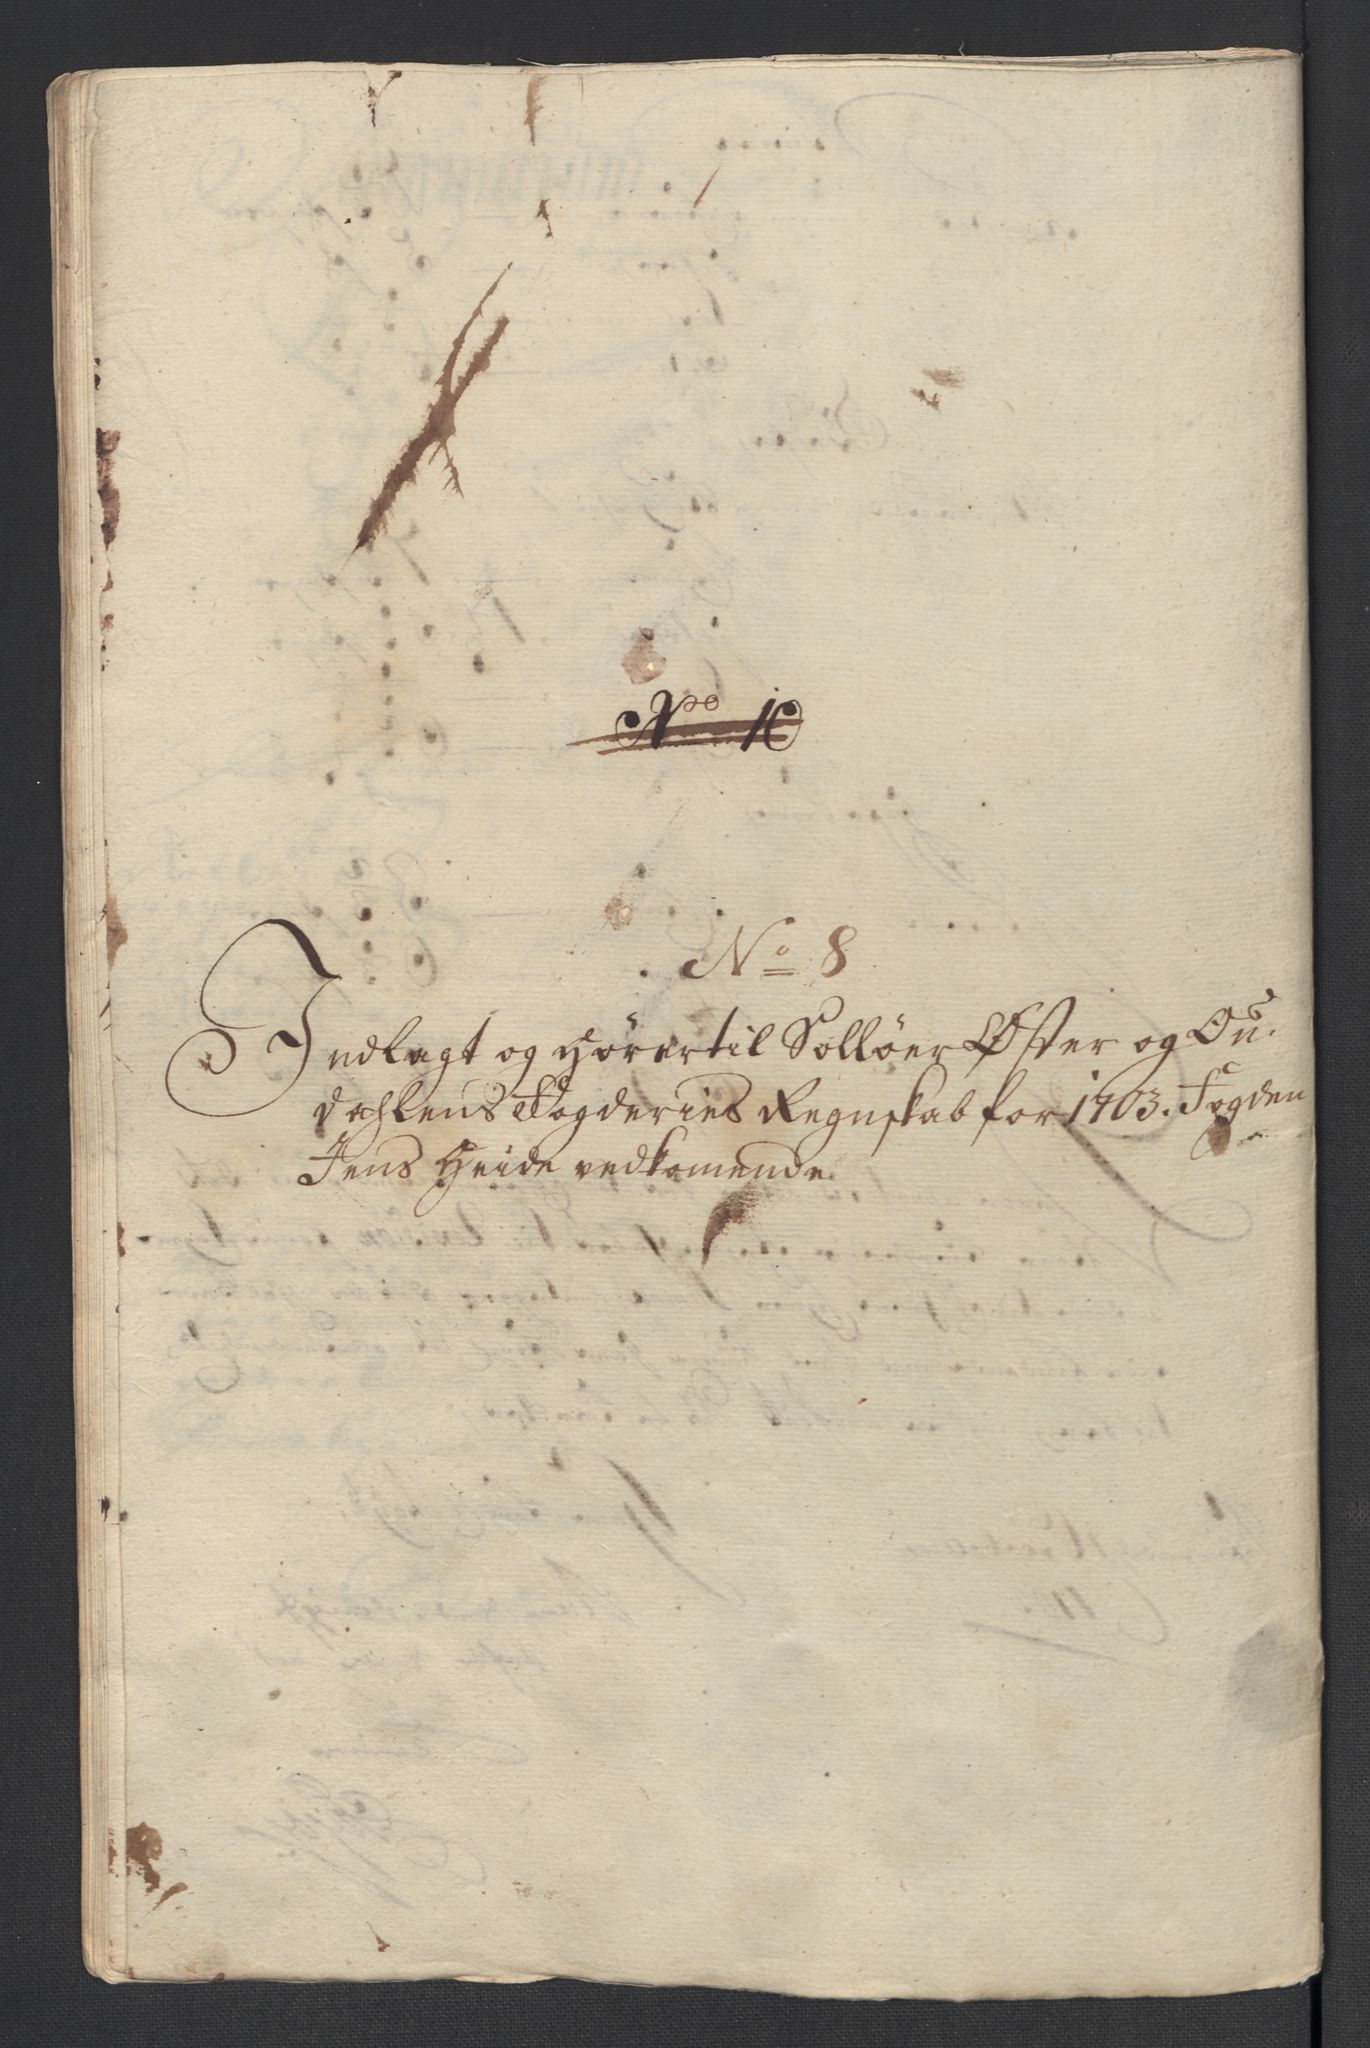 No 10
No 8
Indlagt og Hörer til Sollöer Öster og Ou-
dahlens Fogderies Regnskab for 1703. Fogden
Jens Heide vedkomende.